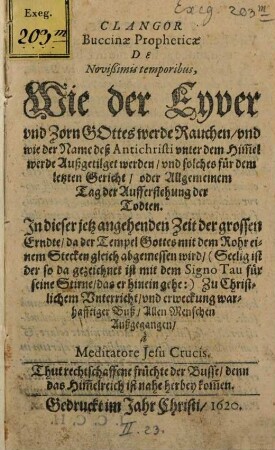 Exeg. 203 m
Exeg.
203 m
CLANGOR
Buccinæ Propheticæ
DE
Novißimis temporibus,
Wie der Eyver
vnd Zorn GOttes werde Rauchen/vnd
wie der Name deß Antichristi vnter dem Him̃el
werde Außgetilget werden/ vnd solches für dem
letzten Gericht/ oder Allgemeinem
Tag der Aufferstehung der
Todten.
In dieser jetz angehenden Zeit der grossen
Erndte/ da der Tempel Gottes mit dem Rohr ei-
nem Stecken gleich abgemessen wird/ (Seelig ist
der so da gezeichnet ist mit dem Signo Tau für
seine Stirne/ das er hinein gehe:) Zu Christ-
lichem Vnterricht/ vnd erweckung war-
hafftiger Buß/ Allen Menschen
Außgegangen/
à
Meditatore Jesu Crucis.
Thut rechtschaffene früchte der Busse/ denn
das Him̃elreich ist nahe herbey kom̃en.
Gedruckt im Jahr Christi/ 1620.
II. 23.